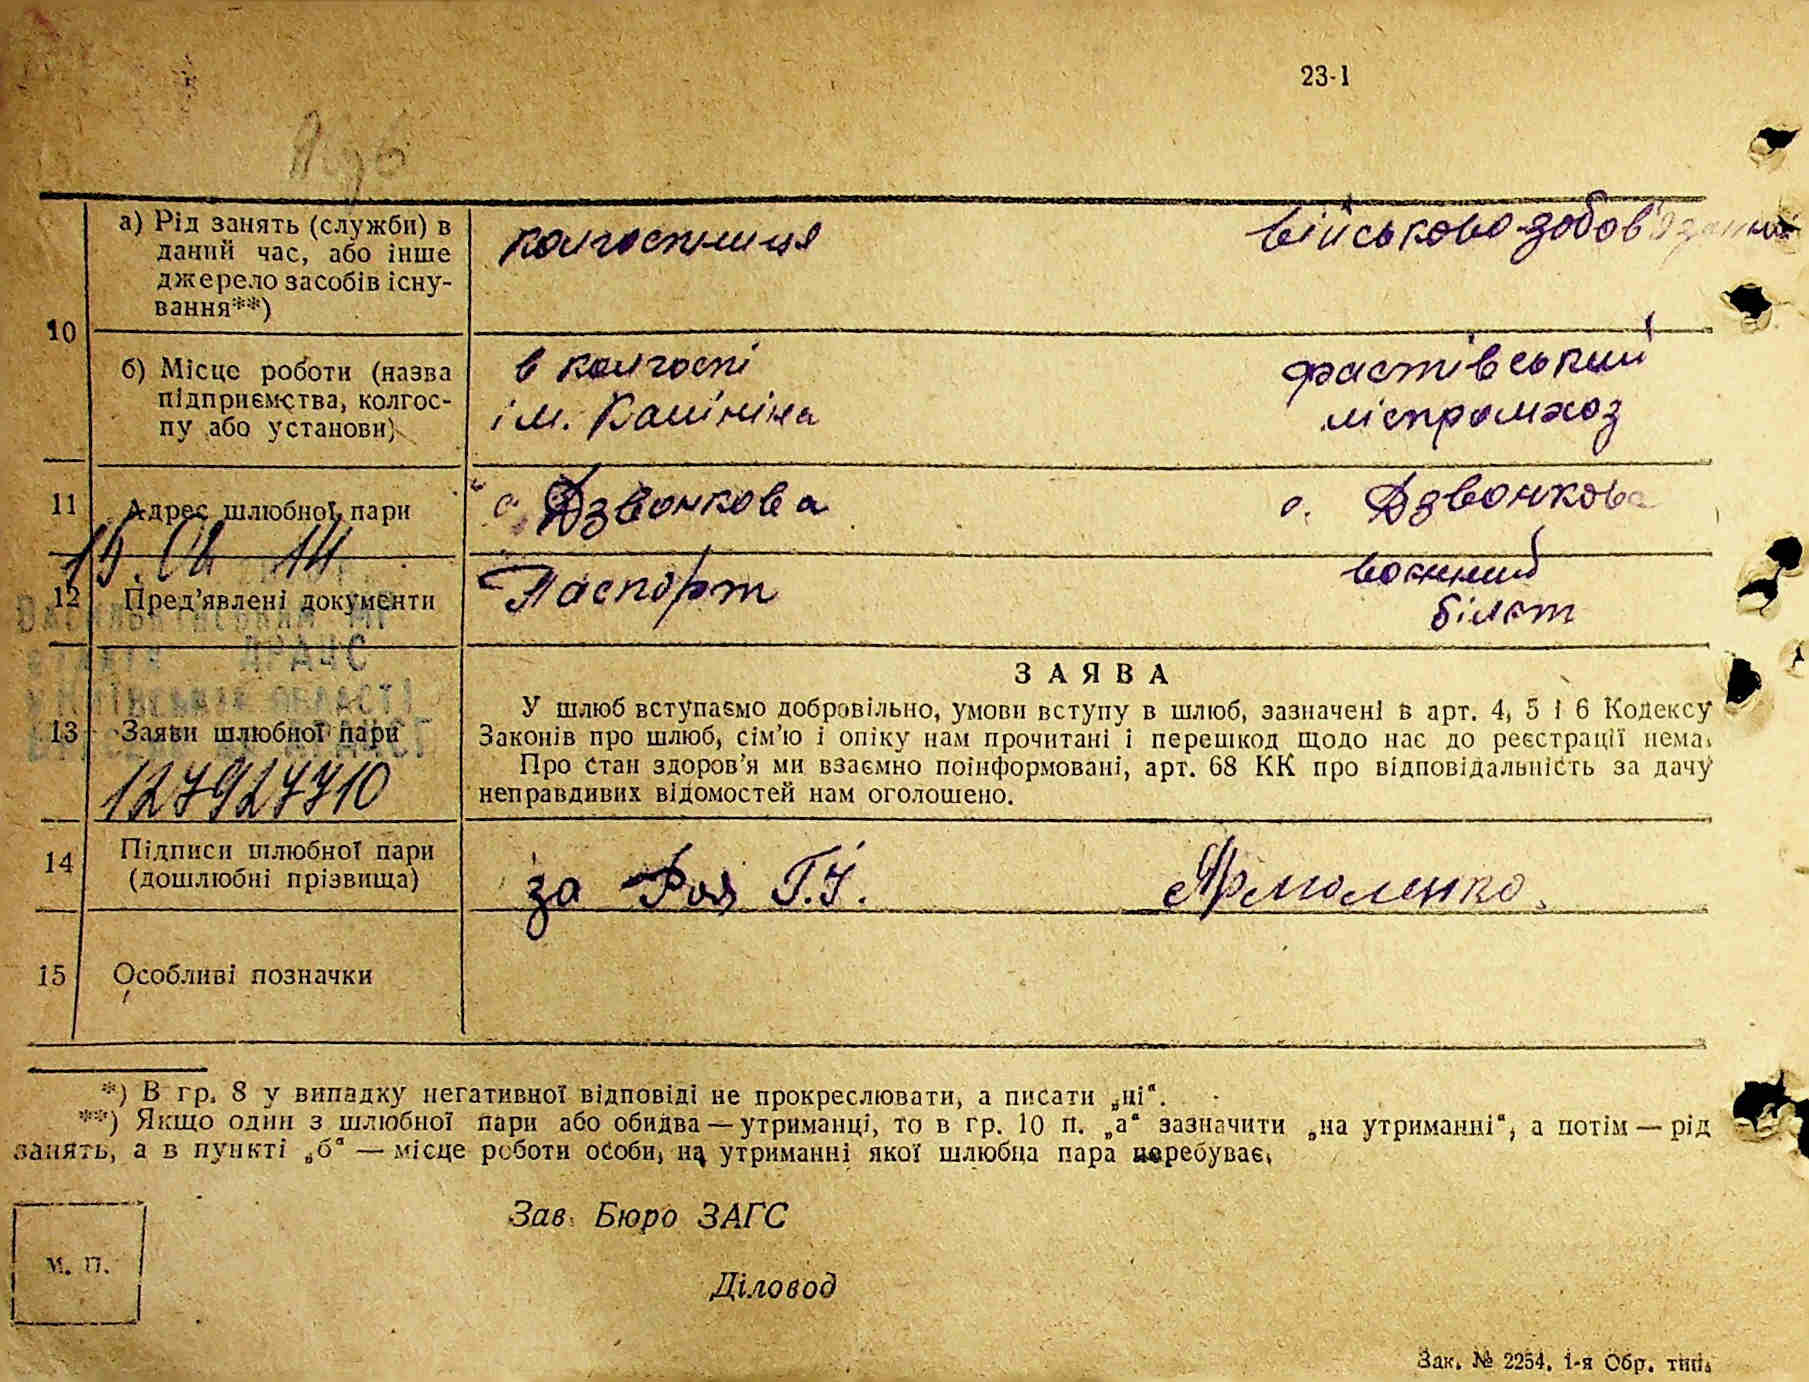 23-1
10
а) Рід занять (служби) в
даний час, або інше
джерело засобів існу-
вання**)
колгоспниця
військовозобов'язаний
б) Місце роботи (назва
підприємства, колгос-
пу або установи)
в колгоспі
ім. Калініна
фастівський
ліспромхоз
11
Адрес шлюбної пари
с. Дзвонкова
с. Дзвонкова
15.04 14
12
Пред'явлені документи
Паспорт
воєнний
білєт
ДРАЦС
13
Заяви шлюбної пари
127927710
ЗАЯВА
У шлюб вступаємо добровільно, умови вступу в шлюб, зазначені в арт. 4, 5 і 6 Кодексу
Законів про шлюб, сім'ю і опіку нам прочитані і перешкод щодо нас до реєстрації нема.
Про стан здоров'я ми взаємно поінформовані, арт. 68 КК про відповідальність за дачу
неправдивих відомостей нам оголошено.
14
Підписи шлюбної пари
(дошлюбні прізвища)
за Роя Г.І.
Ярмоленко.
15
Особливі позначки
*) В гр. 8 у випадку негативної відповіді не прокреслювати, а писати „ні“.
**) Якщо один з шлюбної пари або обидва — утриманці, то в гр. 10 п. „а“ зазначити „на утриманні“, а потім — рід
занять, а в пункті „б“ — місце роботи особи, на утриманні якої шлюбна пара перебуває.
Зав. Бюро ЗАГС
М. П.
Діловод
Зак. № 2254. 1-я Обр. тип.